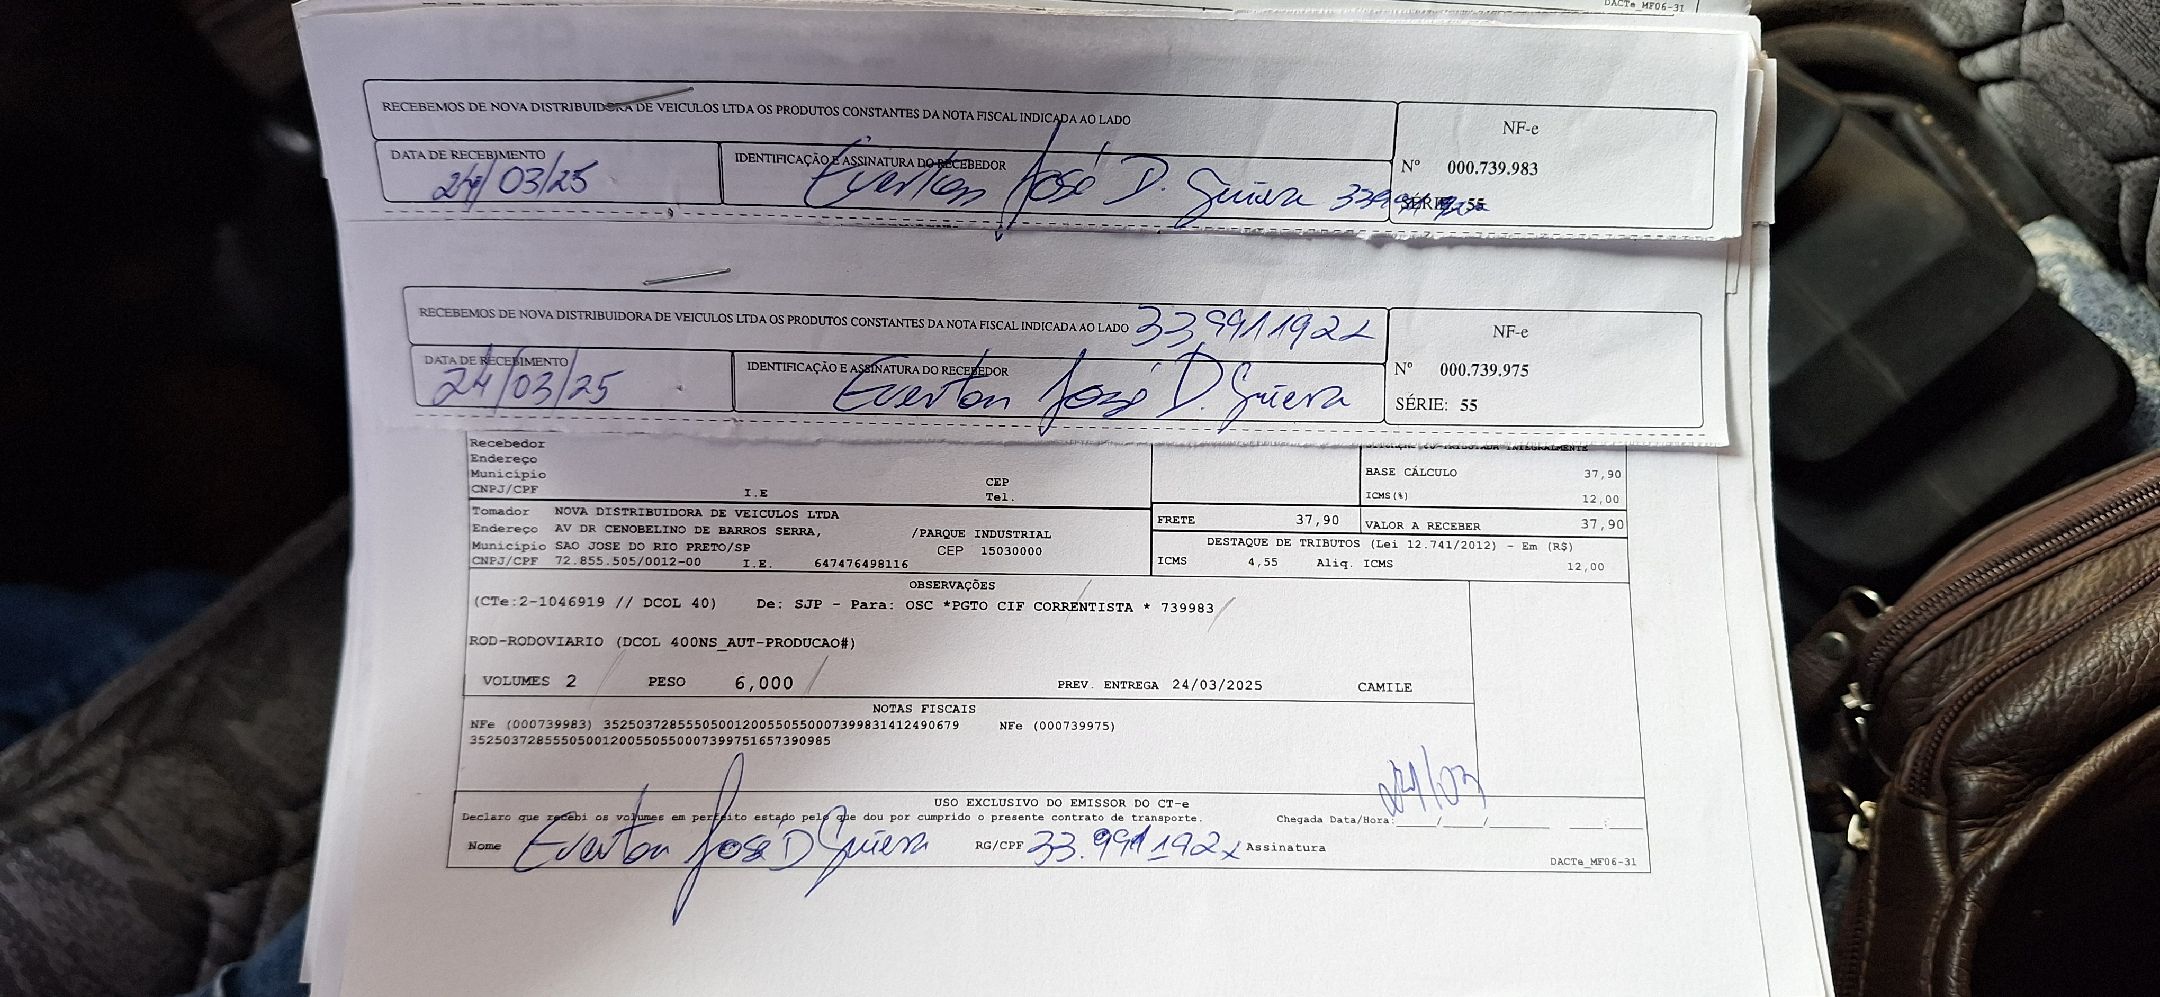 DACTe_MF06-31
RECEBEMOS DE NOVA DISTRIBUIDORA DE VEICULOS LTDA OS PRODUTOS CONSTANTES DA NOTA FISCAL INDICADA AO LADO
NF-e
DATA DE RECEBIMENTO
24/03/25
IDENTIFICAÇÃO E ASSINATURA DO RECEBEDOR
Everton José D.
Nº 000.739.983
SÉRIE: 55
RECEBEMOS DE NOVA DISTRIBUIDORA DE VEICULOS LTDA OS PRODUTOS CONSTANTES DA NOTA FISCAL INDICADA AO LADO
NF-e
DATA DE RECEBIMENTO
24/03/25
IDENTIFICAÇÃO E ASSINATURA DO RECEBEDOR
Everton José D.
Nº 000.739.975
SÉRIE: 55
Recebedor
Endereço
Município CEP
CNPJ/CPF I.E Tel.
BASE CÁLCULO 37,90
ICMS(%) 12,00
Tomador NOVA DISTRIBUIDORA DE VEICULOS LTDA
Endereço AV DR CENOBELINO DE BARROS SERRA, /PARQUE INDUSTRIAL
Município SAO JOSE DO RIO PRETO/SP CEP 15030000
CNPJ/CPF 72.855.505/0012-00 I.E. 647476498116
FRETE 37,90 VALOR A RECEBER 37,90
DESTAQUE DE TRIBUTOS (Lei 12.741/2012) - Em (R$)
ICMS 4,55 Aliq. ICMS 12,00
OBSERVAÇÕES
(CTe:2-1046919 // DCOL 40) De: SJP - Para: OSC *PGTO CIF CORRENTISTA * 739983
ROD-RODOVIARIO (DCOL 400NS_AUT-PRODUCAO#)
VOLUMES 2 PESO 6,000 PREV. ENTREGA 24/03/2025 CAMILE
NOTAS FISCAIS
NFe (000739983) 35250372855505001200550550007399831412490679 NFe (000739975)
35250372855505001200550550007399751657390985
24/03
USO EXCLUSIVO DO EMISSOR DO CT-e
Declaro que recebi os volumes em perfeito estado pelo que dou por cumprido o presente contrato de transporte. Chegada Data/Hora:
Nome Everton José D RG/CPF 33.991.192x Assinatura
DACTe_MF06-31